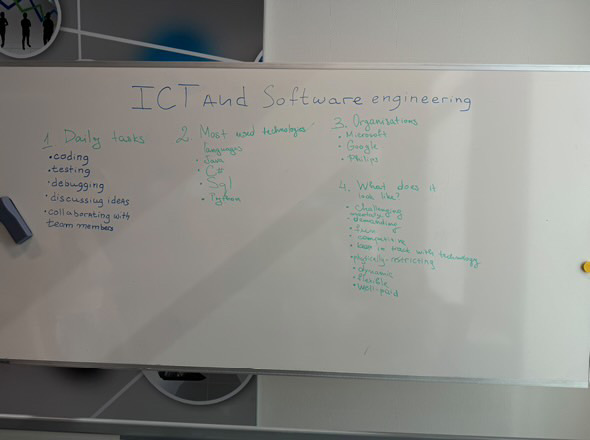 ICT And Software engineering
1 Daily tasks
• coding
• testing
• debugging
• discussing ideas
• collaborating with
team members
2. Most used technologies
languages
• Java
• C#
• Sql
• Python
3. Organisations
• Microsoft
• Google
• Philips
4. What does it
look like?
• challenging
mentally
demanding
• fun
• competitive
• keep in touch with technology
• physically-restricting
• dynamic
• flexible
• well-paid